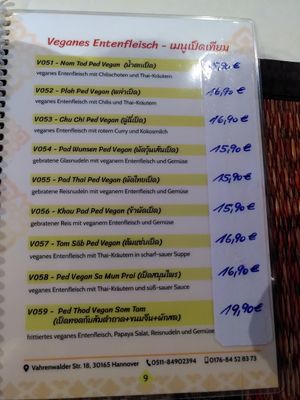 Veganes Entenfleisch - เมนูเป็ดเทียม
V051 - Nam Tod Ped Vegan (น้ำตกเป็ด)
veganes Entenfleisch mit Chilischoten und Thai-Kräutern
V052 - Plah Ped Vegan (พล่าเป็ด) 16,90 €
veganes Entenfleisch mit Chilis und Thai-Kräutern
V053 - Chu Chi Ped Vegan (ฉู่ฉี่เป็ด) 16,90 €
veganes Entenfleisch mit rotem Curry und Kokosmilch
V054 - Pad Wunsen Ped Vegan (ผัดวุ้นเส้นเป็ด) 15,90 €
gebratene Glasnudeln mit veganem Entenfleisch und Gemüse
V055 - Pad Thai Ped Vegan (ผัดไทยเป็ด) 15,90 €
gebratene Reisnudeln mit veganem Entenfleisch und Gemüse
V056 - Khau Pad Ped Vegan (ข้าผัดเป็ด) 15,90 €
gebratener Reis mit veganem Entenfleisch und Gemüse
V057 - Tom Säb Ped Vegan (ต้มแซ่บเป็ด) 16,90 €
veganes Entenfleisch mit Thai-Kräutern in scharf-sauer Suppe
V058 - Ped Vegan Sa Mun Prai (เป็ดสมุนไพร) 16,90 €
veganes Entenfleisch mit Thai-Kräutern und süß-sauer Sauce
V059 - Ped Thod Vegan Som Tam 19,90 €
(เป็ดทอดกับส้มตำถาด+ขนมจีน+ผักสด)
frittiertes veganes Entenfleisch, Papaya Salat, Reisnudeln und Gemüse
Vahrenwalder Str. 18, 30165 Hannover 0511-84902394 0176-84 52 83 73
9